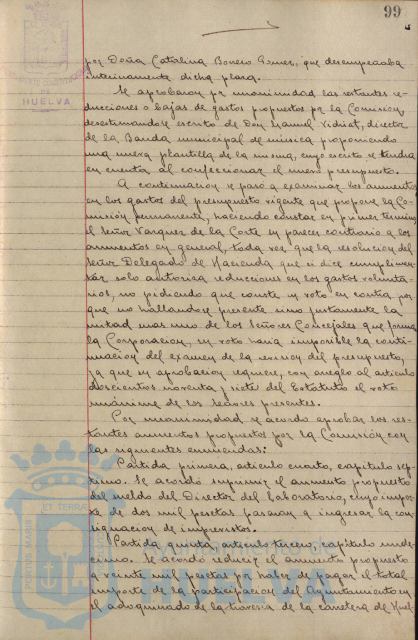 99
HUELVA
por Doña Catalina Bonero Gómez, que desempeñaba
interinamente dicha plaza.
Se aprobaron por unanimidad las restantes re-
ducciones o bajas de gastos propuestos por la Comisión,
desestimándose escrito de Don Manuel, director
de la Banda municipal de música proponiendo
una nueva plantilla de la misma, cuyo escrito se tendrá
en cuenta al confeccionar el nuevo presupuesto.
A continuación se pasó a examinar los aumentos
en los gastos del presupuesto vigente que propone la Co-
misión permanente, haciendo constar en primer término
el Señor Vazquez de la Corte su parecer contrario a los
aumentos en general, toda vez que la resolución del
Señor Delegado de Hacienda que se dice cumplimen-
tar solo autoriza reducciones en los gastos volunta-
rios, no pidiendo que conste su voto en contra por
que no hallandose presente sino justamente la
mitad mas uno de los Señores Concejales que forman
la Corporacion, su voto haria imposible la conti-
nuacion del examen de la revision del presupuesto,
ya que su aprobacion requiere, con arreglo al articulo
doscientos noventa y siete del Estatuto el voto
unánime de los señores presentes.
Por unanimidad se acordó aprobar los res-
tantes aumentos propuestos por la Comisión con
las siguientes enmiendas:
Partida primera, articulo cuarto, capitulo sep-
timo. Se acordó suprimir el aumento propuesto
del sueldo del Director del Laboratorio, cuyo impor-
te de dos mil pesetas pasaran a ingresar la con-
signacion de imprevistos.
Partida quinta articulo tercero, capitulo unde-
cimo. Se acordó reducir el aumento propuesto
a veinte mil pesetas por haber de pagar el total
importe de la participacion del Ayuntamiento en
el adoquinado de la travesia de la carretera de Huel-
PORTUS MARIS ET TERRAE CUSTODIA
Ayuntamiento de
HUELVA